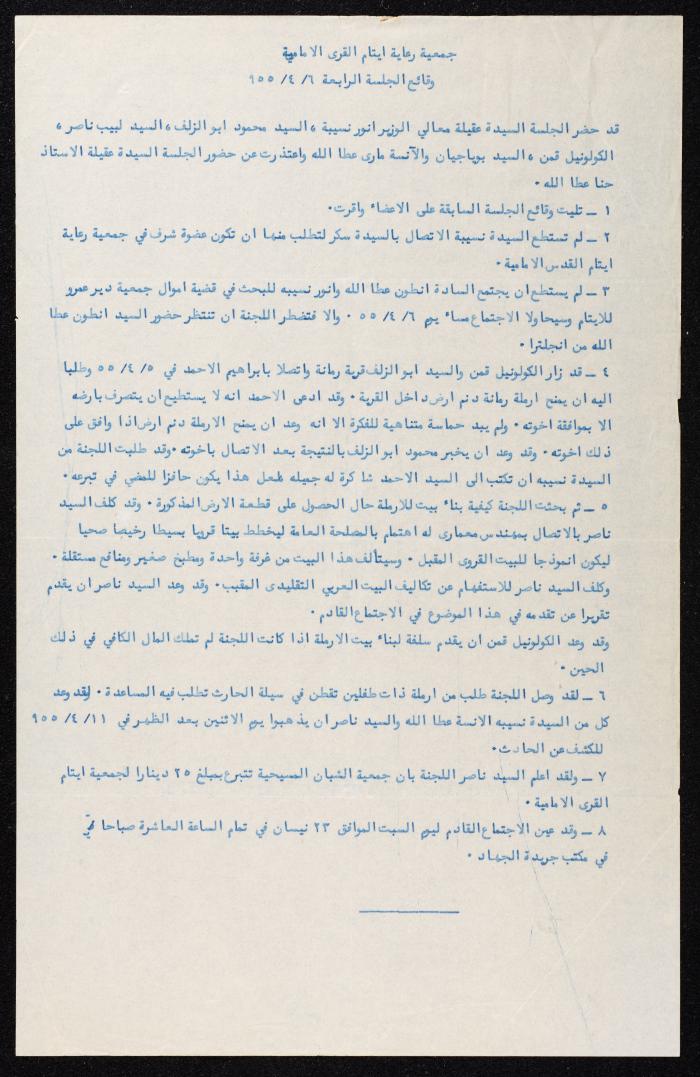 جمعية رعاية ايتام القرى الامامية
وقائع الجلسة الرابعة ٦/ ٤/ ٩٥٥
قد حضر الجلسة السيدة عقيلة معالي الوزير انور نسيبة ، السيد محمود ابو الزلف ، السيد لبيب ناصر ،
الكولونيل قمن ، السيد بوياجيان والآنسة مارى عطا الله واعتذرت عن حضور الجلسة السيدة عقيلة الاستاذ
حنا عطا الله ٠
١ ــ تليت وقائع الجلسة السابقة على الاعضاء واقرت٠
٢ ــ لم تستطع السيدة نسيبة الاتصال بالسيدة سكر لتطلب منها ان تكون عضوة شرف في جمعية رعاية
ايتام القدس الامامية ٠
٣ ــ لم يستطع ان يجتمع السادة انطون عطا الله وانور نسيبه للبحث في قضية اموال جمعية دير عمرو
للايتام وسيحاولا الاجتماع مساء يوم ٦/ ٤/ ٥٥ ٠ والا فتضطر اللجنة ان تنتظر حضور السيد انطون عطا
الله من انجلترا ٠
٤ ــ قد زار الكولونيل قمن والسيد ابو الزلف قرية رمانة واتصلا بابراهيم الاحمد في ٥/ ٤/ ٥٥ وطلبا
اليه ان يمنح ارملة رمانة دنم ارض داخل القرية ٠ وقد ادعى الاحمد انه لا يستطيع ان يتصرف بارضه
الا بموافقة اخوته ٠ ولم يبد حماسة متناهية للفكرة الا انه وعد ان يمنح الارملة دنم ارض اذا وافق على
ذلك اخوته ٠ وقد وعد ان يخبر محمود ابو الزلف بالنتيجة بعد الاتصال باخوته ٠وقد طلبت اللجنة من
السيدة نسيبه ان تكتب الى السيد الاحمد شاكرة له جميله لعل هذا يكون حافزا للمضي في تبرعه ٠
٥ ــ ثم بحثت اللجنة كيفية بناء بيت للارملة حال الحصول على قطعة الارض المذكورة ٠ وقد كلف السيد
ناصر بالاتصال بمهندس معمارى له اهتمام بالمصلحة العامة ليخطط بيتا قرويا بسيطا رخيصا صحيا
ليكون انموذجا للبيت القروى المقبل ٠ وسيتألف هذا البيت من غرفة واحدة ومطبخ صغير ومنافع مستقلة ٠
وكلف السيد ناصر للاستفهام عن تكاليف البيت العربي التقليدى المقبب٠ وقد وعد السيد ناصر ان يقدم
تقريرا عن تقدمه في هذا الموضوع في الاجتماع القادم ٠
وقد وعد الكولونيل قمن ان يقدم سلفة لبناء بيت الارملة اذا كانت اللجنة لم تملك المال الكافي في ذلك
الحين ٠
٦ ــ لقد وصل اللجنة طلب من ارملة ذات طفلين تقطن في سيلة الحارث تطلب فيه المساعدة ٠ لقد وعد
كل من السيدة نسيبه الانسة عطا الله والسيد ناصر ان يذهبوا يوم الاثنين بعد الظهر في ١١/ ٤/ ٩٥٥
للكشف عن الحادث٠
٧ ــ ولقد اعلم السيد ناصر اللجنة بان جمعية الشبان المسيحية تتبرع بمبلغ ٢٥ دينارا لجمعية ايتام
القرى الامامية ٠
٨ ــ وقد عين الاجتماع القادم ليوم السبت الموافق ٢٣ نيسان في تمام الساعة العاشرة صباحا
في مكتب جريدة الجهاد ٠